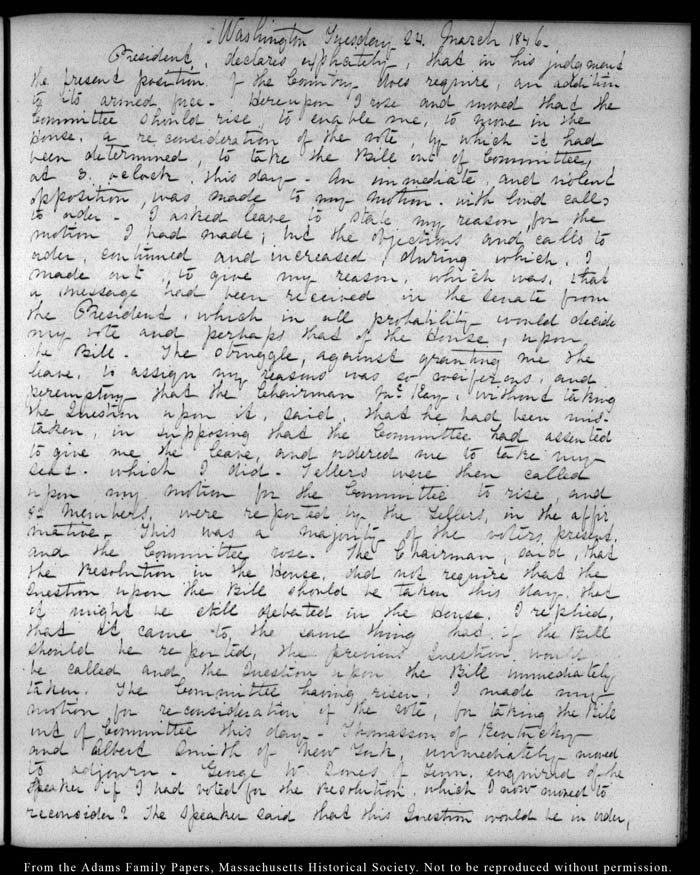 Washington Tuesday 24. March 1846.
President, declares explicitly, that in his judgment
the present position of the Country does require, an addition
to its armed force - Hereupon I rose and moved that the
Committee should rise, to enable me, to move in the
House, a reconsideration of the vote, by which it had
been determined, to take the Bill out of Committee,
at 3. o'clock, this day - An immediate, and violent
opposition, was made to my motion. with loud calls
to order - I asked leave to state my reason, for the
motion I had made; but the objections and calls to
order, continued and increased, during which, I
made out, to give my reason, which was, that
a message had been received in the Senate from
the President, which in all probability would decide
my vote and perhaps that of the House, upon
the Bill. The struggle, against granting me the
leave, to assign my reasons was so vociferous, and
peremptory that the Chairman Mc. Kay, without taking
the Question upon it, said, that he had been mis-
taken, in supposing that the Committee had assented
to give me the leave, and ordered me to take my
seat. which I did - Tellers were then called
upon my motion for the Committee to rise, and
members, were reported by the Tellers, in the affir
mative - This was a majority of the voters, present,
and the Committee rose. The Chairman, said, that
the Resolution in the House, did not require that the
Question upon the Bill should be taken this day. that
it might be still debated in the House. I replied,
that it came to, the same thing that if the Bill
should be reported, the previous Question would
be called and, the Question upon the Bill immediately
taken. The Committee having risen, I made my
motion for reconsideration of the vote, for taking the Bill
out of Committee this day - Thomasson of Kentucky
and Albert Smith of New York, immediately moved
to adjourn - George W. Jones of Tenn. enquired of the
Speaker if I had voted for the Resolution, which I now moved to
reconsider? The Speaker said that this Question would be in order,
From the Adams Family Papers, Massachusetts Historical Society. Not to be reproduced without permission.